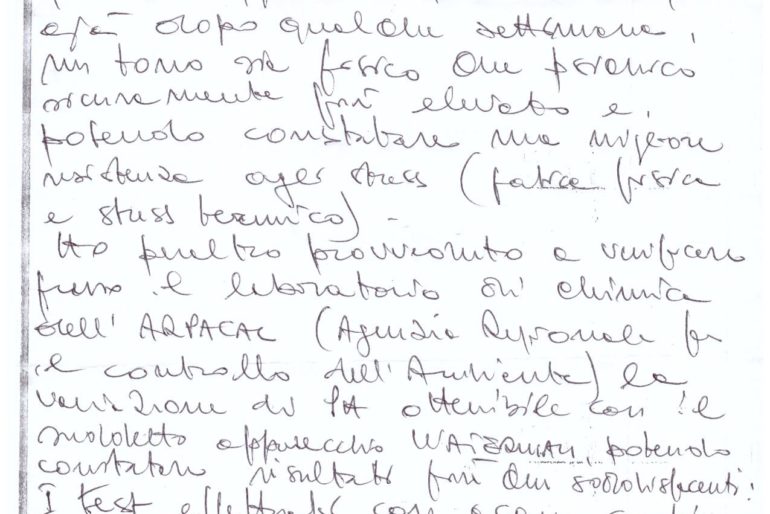 già dopo qualche settimana,
un tono sia fisico che psichico
sicuramente più elevato e,
potendo constatare una migliore
resistenza agli stress (fatica fisica
e stress termico) -
Ho peraltro provveduto a verificare
presso il laboratorio di chimica
dell'ARPACAL (Agenzia Regionale per
il controllo dell'Ambiente) la
variazione di PH ottenibile con il
suddetto apparecchio WATERMAN, potendo
constatare risultati più che soddisfacenti:
I test effettuati con acqua